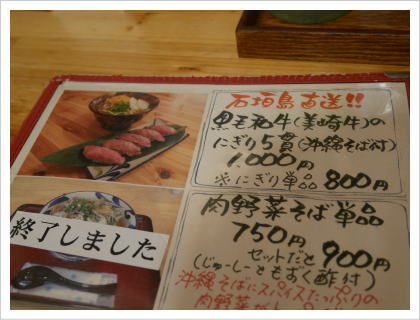 石垣島直送!!
黒毛和牛(美崎牛)の
にぎり5貫(沖縄そば付)
1,000円
※にぎり単品 800円
肉野菜そば単品
750円
セットだと 900円
(じゅーしーともずく酢付)
沖縄そばにスパイスたっぷりの
肉野菜が
終了しました